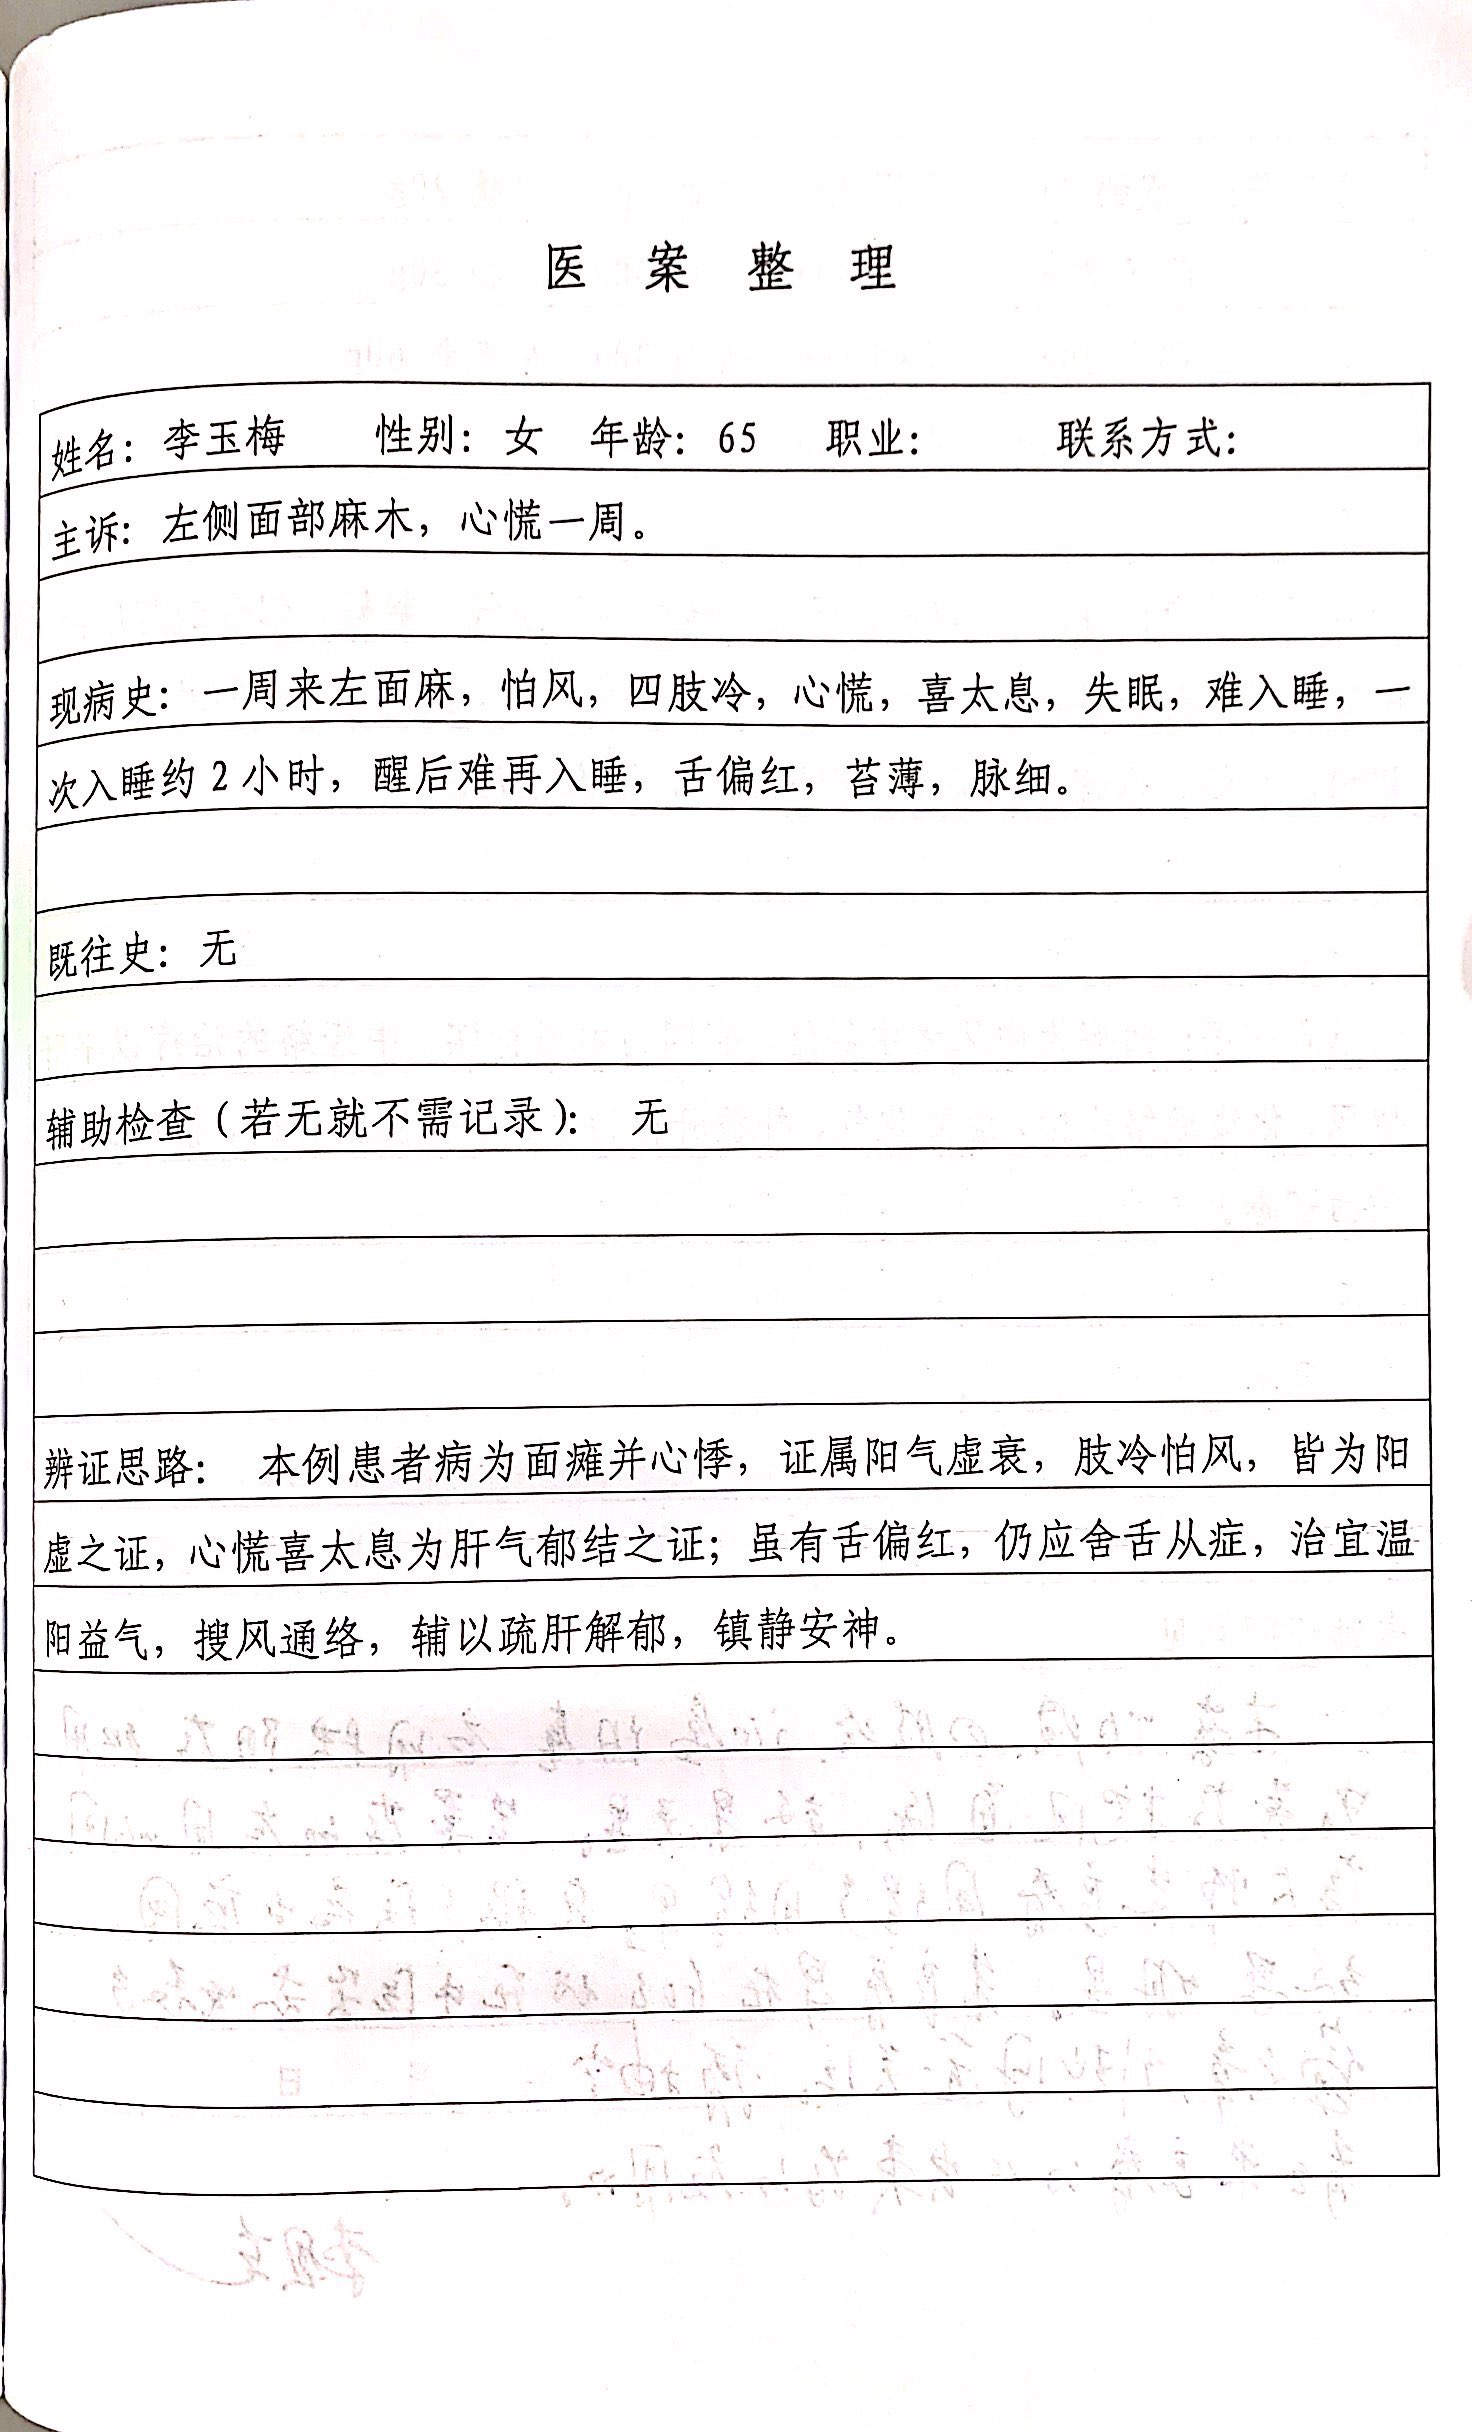 医案整理
姓名：李玉梅 性别：女 年龄：65 职业： 联系方式：
主诉：左侧面部麻木，心慌一周。
现病史：一周来左面麻，怕风，四肢冷，心慌，喜太息，失眠，难入睡，一
次入睡约2小时，醒后难再入睡，舌偏红，苔薄，脉细。
既往史：无
辅助检查（若无就不需记录）： 无
辨证思路： 本例患者病为面瘫并心悸，证属阳气虚衰，肢冷怕风，皆为阳
虚之证，心慌喜太息为肝气郁结之证；虽有舌偏红，仍应舍舌从症，治宜温
阳益气，搜风通络，辅以疏肝解郁，镇静安神。